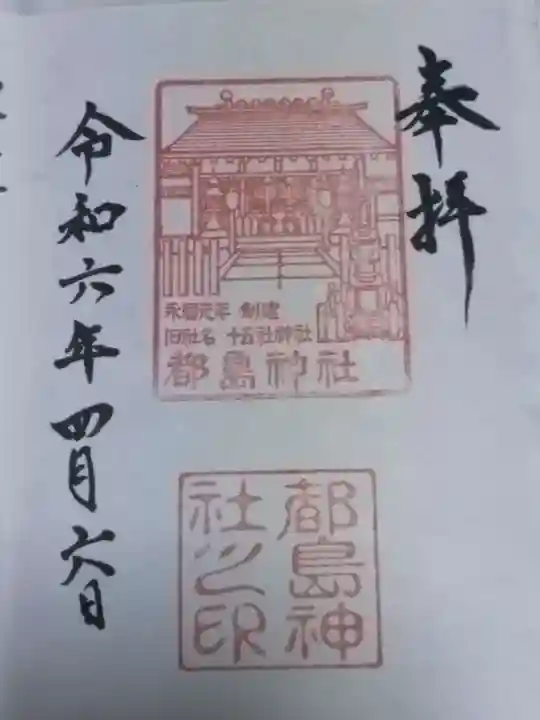 奉拝
永禄元年 創建
旧社名 十五社神社
都島神社
都島神
社之印
令和六年四月六日